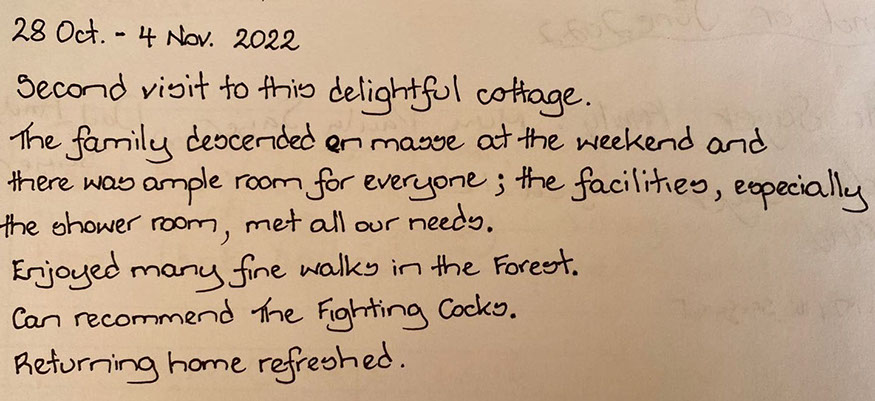 28 Oct. - 4 Nov. 2022
Second visit to this delightful cottage.
The family descended en masse at the weekend and
there was ample room for everyone; the facilities, especially
the shower room, met all our needs.
Enjoyed many fine walks in the Forest.
Can recommend The Fighting Cocks.
Returning home refreshed.